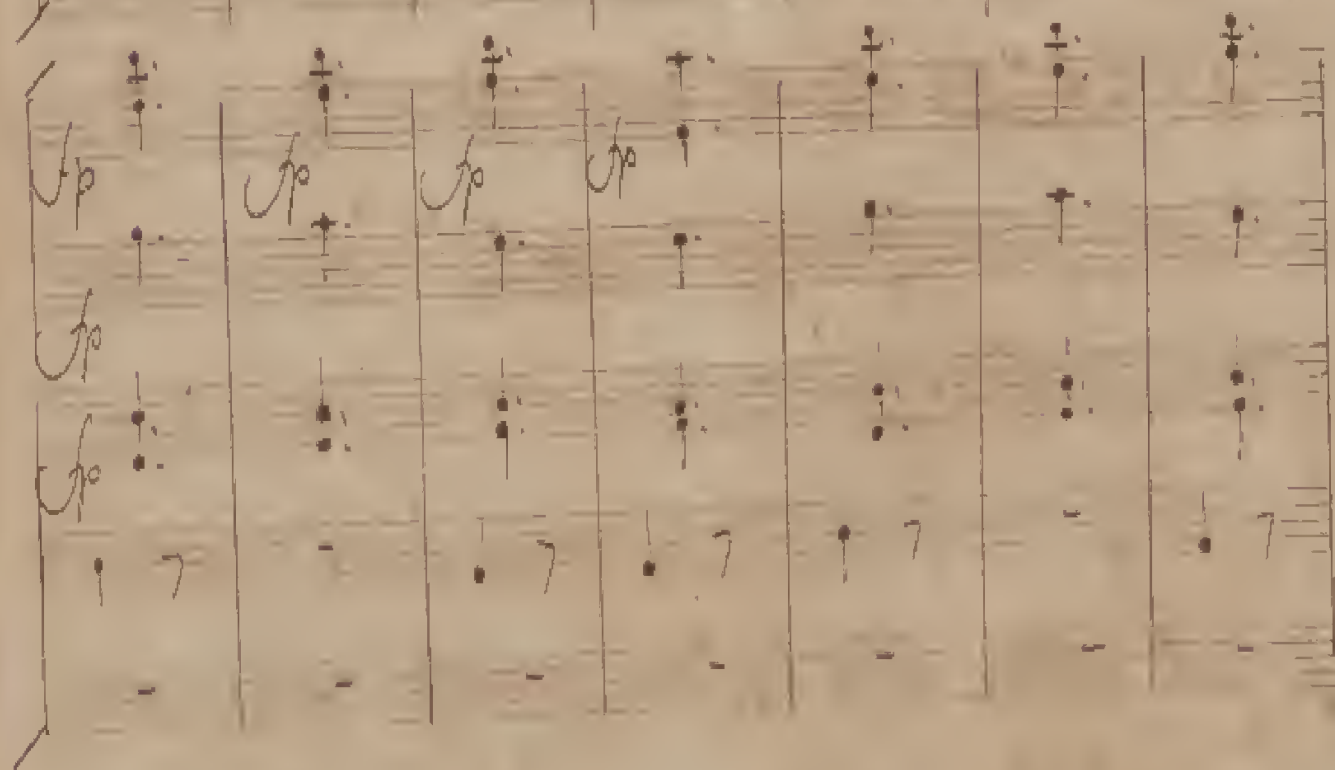 fp fp fp fp
fp
fp